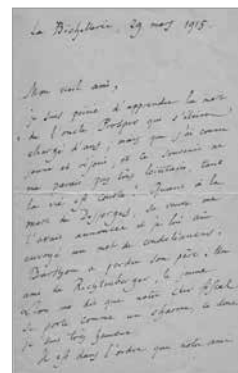 La Béchellerie, 29 mars 1915.
Mon vieil ami,
Je suis peiné d'apprendre la mort
de l'oncle Prosper qui s'éteint,
chargé d'ans, mais que j'ai connu
jeune et réjoui, et le souvenir ne
me paraît pas très lointain, tant
la vie est courte. Quant à la
mort de Desforges, sa veuve me
l'avait annoncée et je lui ai
envoyé un mot de condoléances.
a perdu son père. Un
ami de le jeune
Léon me dit que notre cher
se porte comme un charme, et donc
je suis très heureux.
Il est dans l'ordre que notre ami